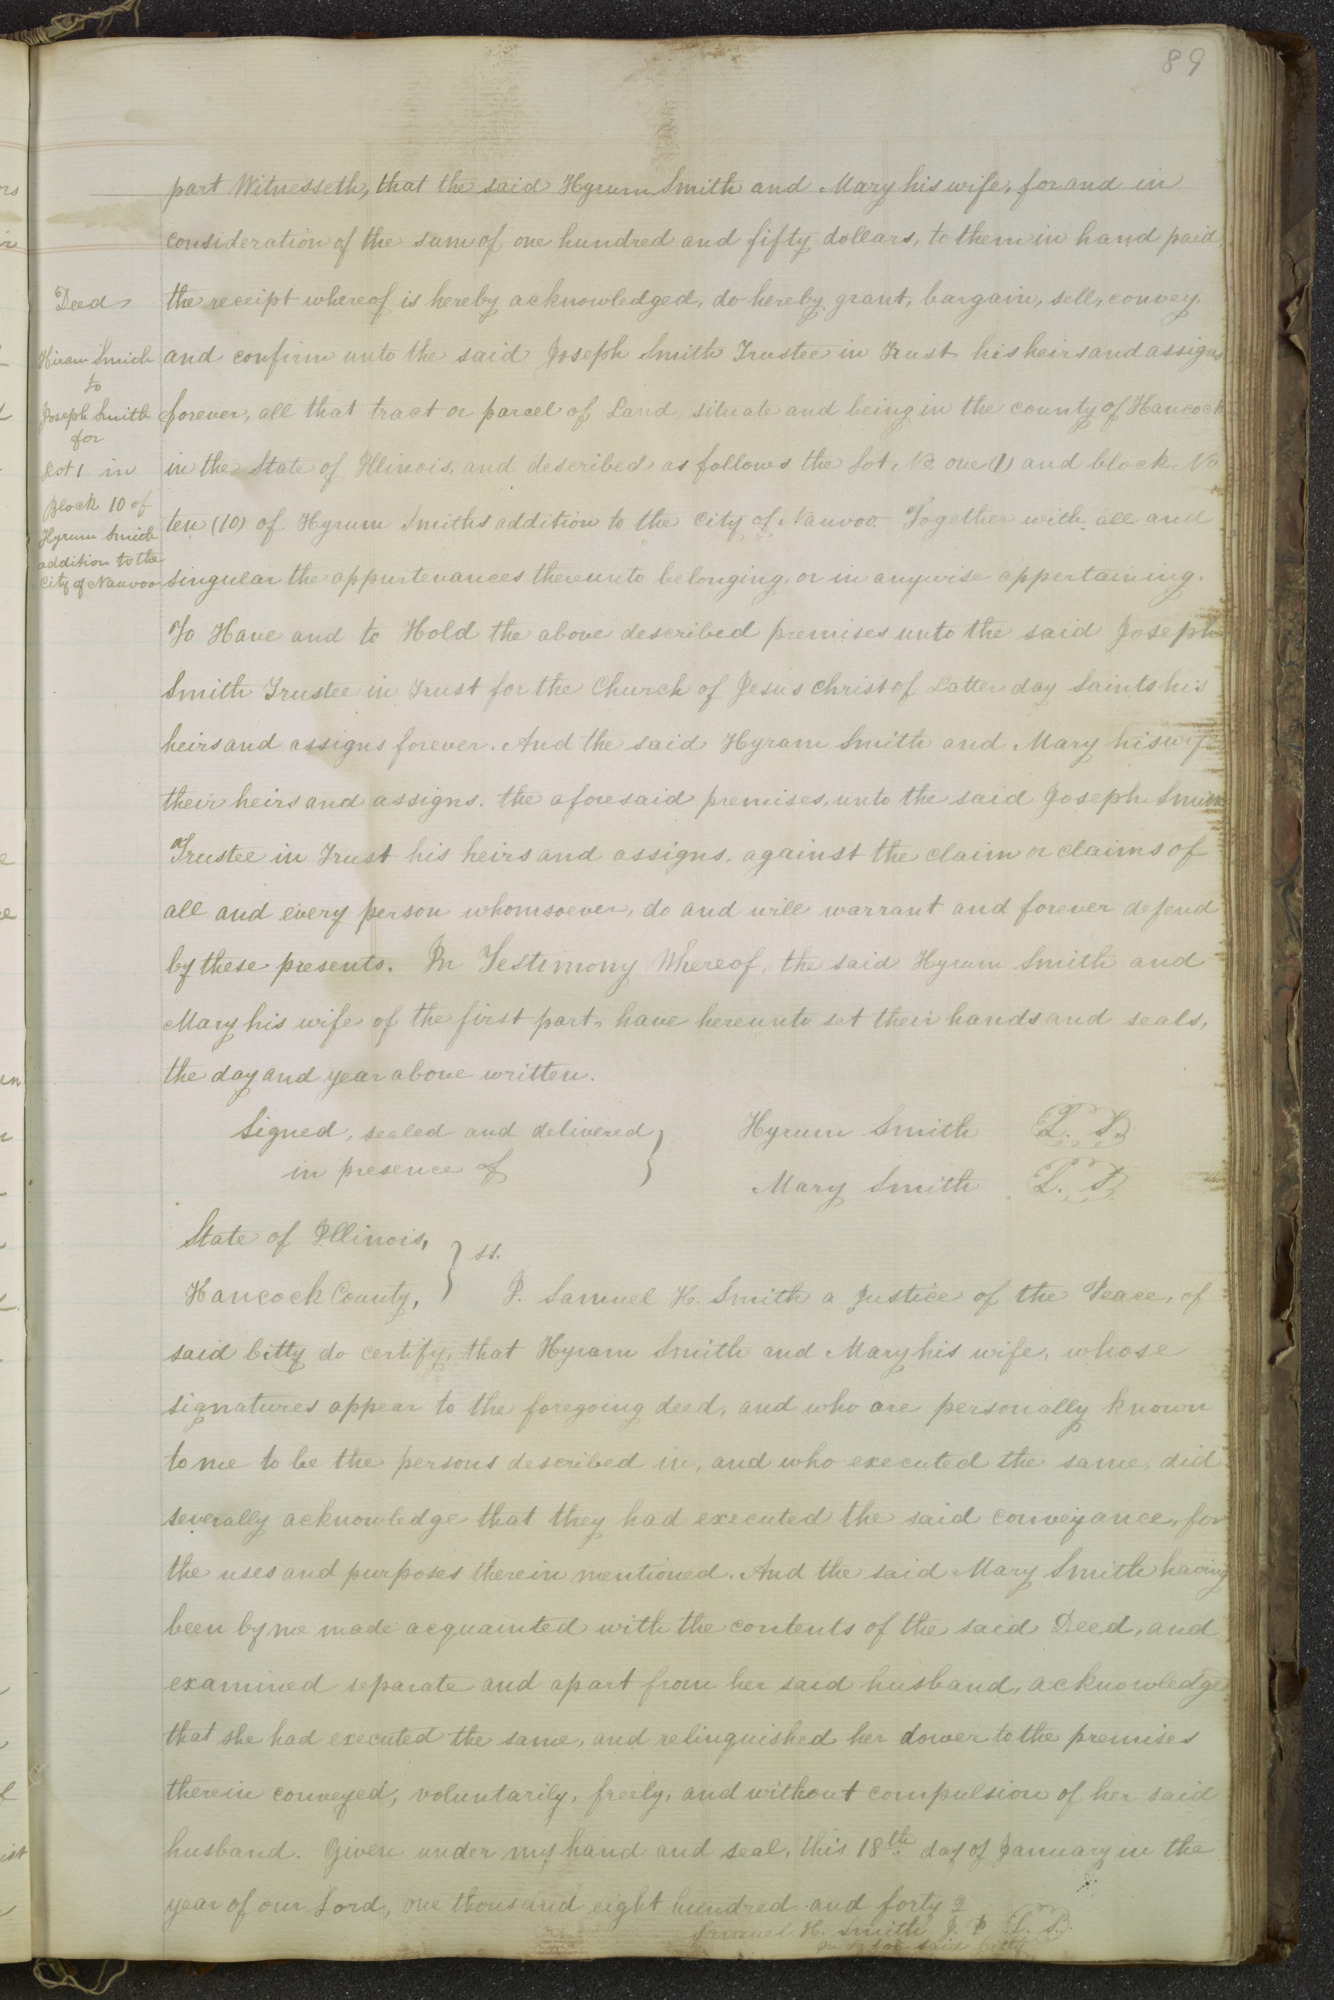 89
part Witnesseth, that the said Hyrum Smith and Mary his wife, for and in
consideration of the sum of one hundred and fifty dollars, to them in hand paid,
the receipt whereof is hereby acknowledged, do hereby grant, bargain, sell, convey
and confirm unto the said Joseph Smith Trustee in Trust his heirs and assigns
forever, all that tract or parcel of Land, situate and being in the county of Hancock
in the State of Illinois, and described as follows the Lot, No. one (1) and block No
ten (10) of Hyrum Smiths addition to the City of Nauvoo. Together with all and
singular the appurtenances thereunto belonging, or in anywise appertaining.
To Have and to Hold the above described premises unto the said Joseph
Smith Trustee in Trust for the Church of Jesus Christ of Latter day Saints his
heirs and assigns forever. And the said Hyram Smith and Mary his wife
their heirs and assigns. the aforesaid premises, unto the said Joseph Smith
Trustee in Trust his heirs and assigns, against the claim or claims of
all and every person whomsoever, do and will warrant and forever defend
by these presents. In Testimony Whereof, the said Hyrum Smith and
Mary his wife of the first part, have hereunto set their hands and seals,
the day and year above written.
Deed
Hiram Smith
to
Joseph Smith
for
Lot 1 in
Block 10 of
Hyrum Smith
addition to the
City of Nauvoo
Signed, sealed and delivered
in presence of
Hyrum Smith L. S.
Mary Smith L. S.
State of Illinois,
Hancock County, } ss.
I. Samuel H. Smith a Justice of the Peace, of
said Citty do certify, that Hyram Smith and Mary his wife, whose
signatures appear to the foregoing deed, and who are personally known
to me to be the persons described in, and who executed the same, did
severally acknowledge that they had executed the said conveyance, for
the uses and purposes therein mentioned. And the said Mary Smith having
been by me made acquainted with the contents of the said Deed, and
examined separate and apart from her said husband, acknowledge
that she had executed the same, and relinquished her dower to the premises
therein conveyed, voluntarily, freely, and without compulsion of her said
husband. Given under my hand and seal, this 18th day of January in the
year of our Lord, one thousand eight hundred and forty 2
Samuel H. Smith J. P. L. S.
for said